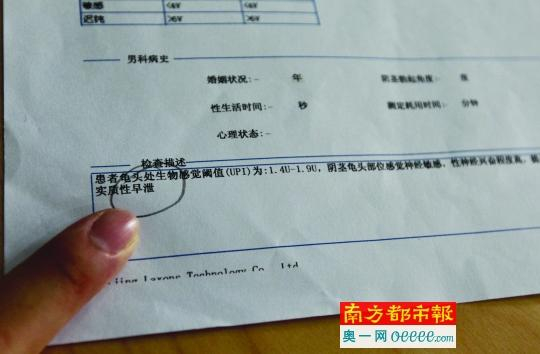 敏感 <4V <4V
迟钝 >6V >6V
男科病史
婚姻状况:- 年 阴茎勃起角度:- 度
性生活时间:- 秒 测定耗用时间:- 分钟
心理状态:-
检查描述
患者龟头处生物感觉阈值(UPI)为:1.4U-1.9U，阴茎龟头部位感觉神经敏感，性神经兴奋程度高，
实质性早泄
jing Laxons Technology Co., Ltd
南方都市報
奥一网 oeeee.com